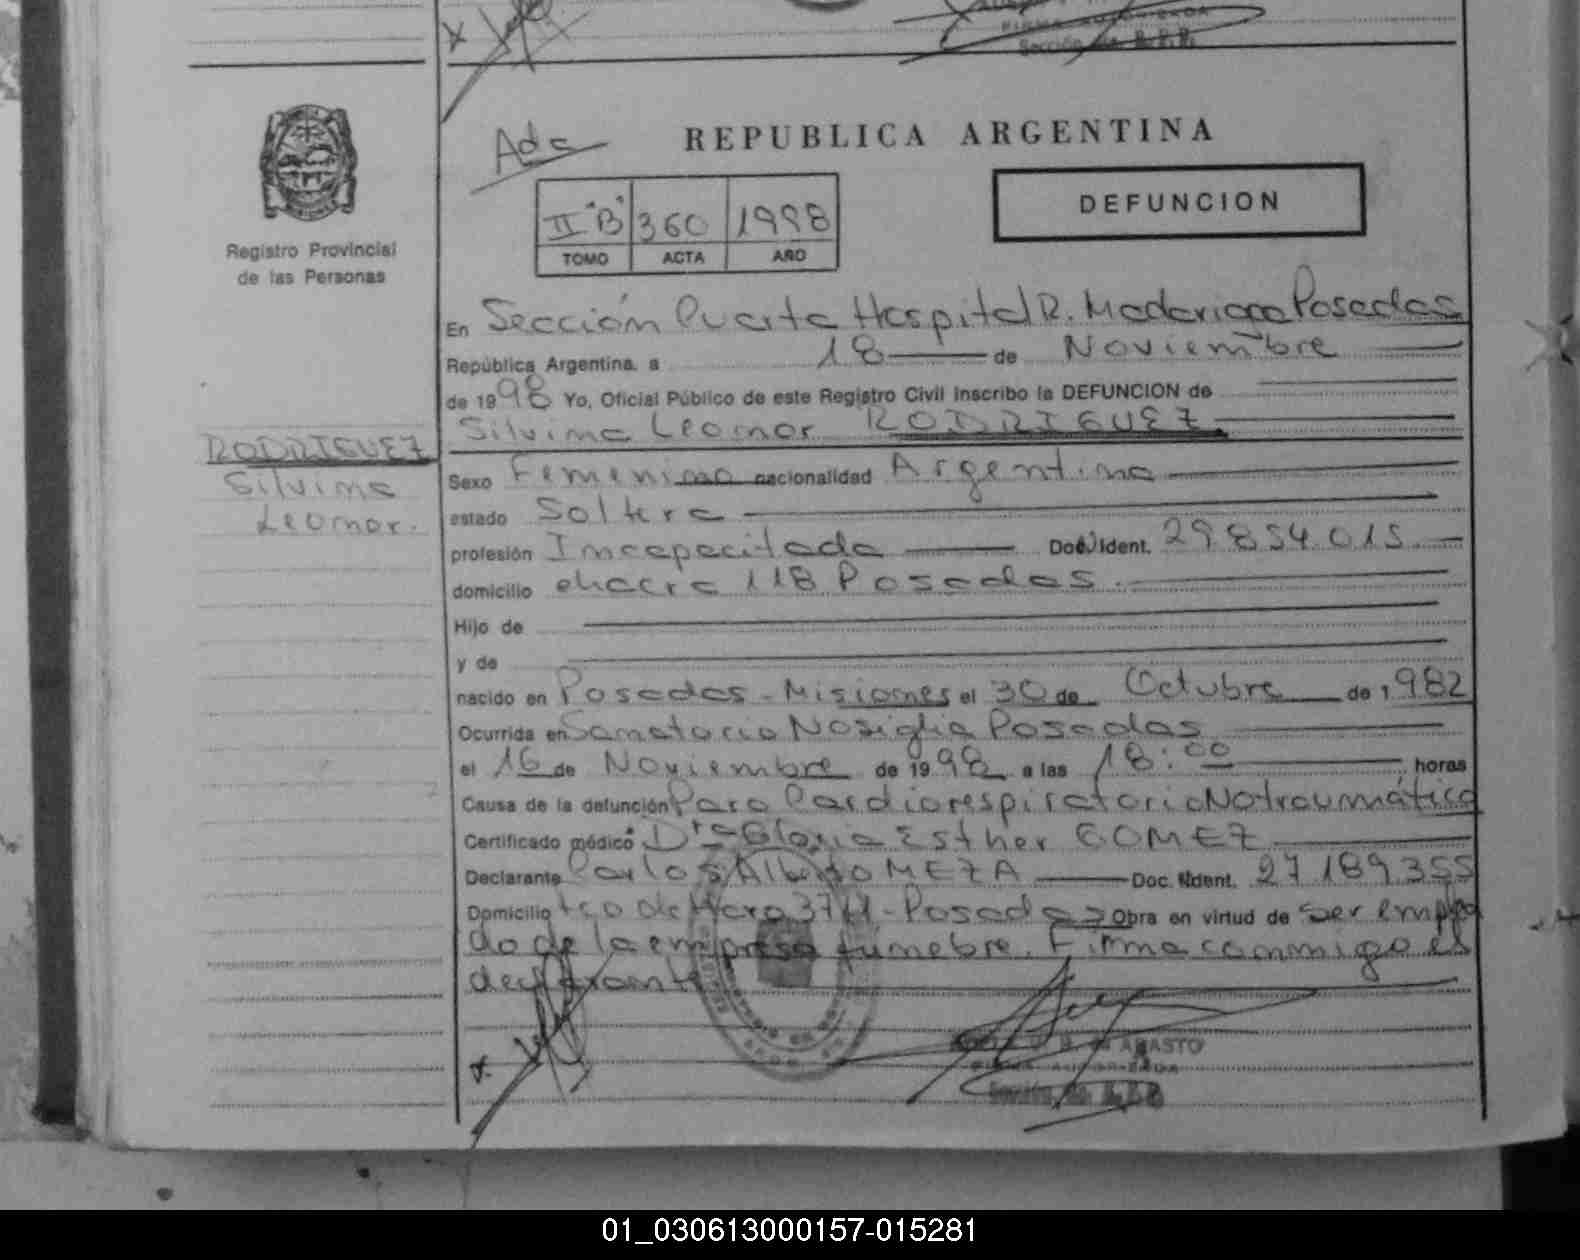 REPUBLICA ARGENTINA
DEFUNCION
II "B" 360 1998
TOMO ACTA AÑO
Registro Provincial
de las Personas
RODRIGUEZ
Silvina
Leonor.
En Sección Cuarta Hospital R. Madariaga Posadas
República Argentina, a 18 de Noviembre
de 1998 Yo, Oficial Público de este Registro Civil Inscribo la DEFUNCION de
Silvina Leonor RODRIGUEZ
Sexo Femenino nacionalidad Argentina
estado Soltera
profesión Incapacitada Doc. Ident. 29.854.015
domicilio chacra 118 Posadas.
Hijo de
y de
nacido en Posadas - Misiones el 30 de Octubre de 1982
Ocurrida en Sanatorio Nosiglia Posadas
el 16 de Noviembre de 1998 a las 18:00 horas
Causa de la defunción Paro Cardiorespiratorio No traumático
Certificado médico Dra Gloria Esther GOMEZ
Declarante Carlos Alberto MEZA Doc. Ident. 27.189.355
Domicilio de Haro 3741 - Posadas Obra en virtud de ser emplea
do de la empresa fúnebre. Firma conmigo el
declarante
ABASTO
FIRMA AUTORIZADA
01_030613000157-015281